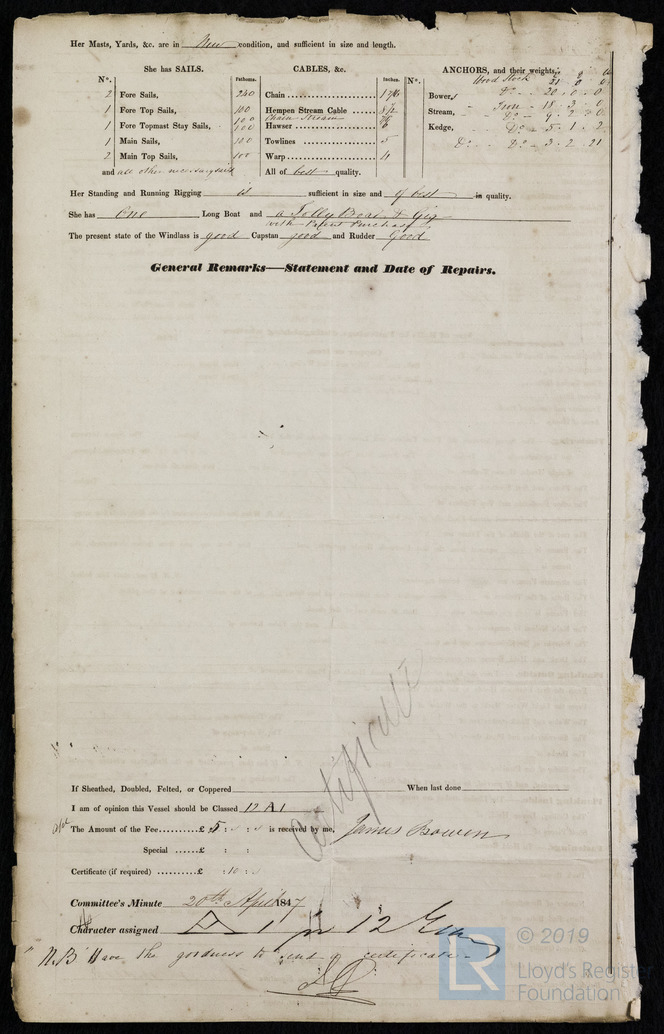 Her Masts, Yards, &c. are in New condition, and sufficient in size and length.
She has SAILS.
CABLES, &c.
ANCHORS, and their weights,
Nº.
Fathoms.
Inches.
Nº.
Wood Stock 21 0 0
2 Fore Sails,
240
Chain
1 7/16
Bowers,
Dº 20 0 0
1 Fore Top Sails,
100
Hempen Stream Cable
8 1/2
Iron 18 3 0
100
Chain Stream
Stream,
Dº 9 2 0
1 Fore Topmast Stay Sails,
100
Hawser
6
Kedge,
Dº 5 1 2
1 Main Sails,
100
Towlines
5
Dº Dº 3 2 21
2 Main Top Sails,
100
Warp
4
and all other necessary sails
All of best quality.
Her Standing and Running Rigging is sufficient in size and of best in quality.
She has One Long Boat and a Jolly Boat & Gig
with Patent Purchase
The present state of the Windlass is good Capstan good and Rudder Good
General Remarks—Statement and Date of Repairs.
Certificate
If Sheathed, Doubled, Felted, or Coppered
When last done
I am of opinion this Vessel should be Classed 12 A 1
The Amount of the Fee.........£ 5 : : is received by me, James Bowen
Special ......£ : :
Certificate (if required) ..........£ : 10 :
Committee's Minute 20th April 1847
Character assigned A 1 for 12 Years
"N.B" Have the goodness to send a certificate
© 2019
LR
Lloyd's Register
Foundation